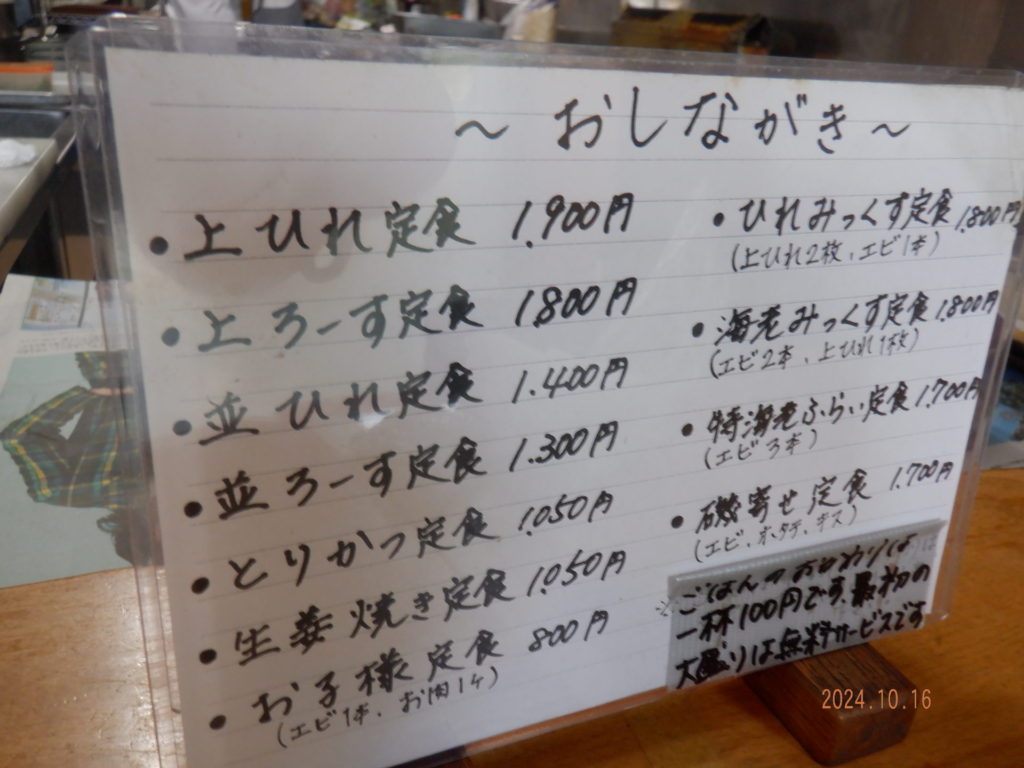 ～おしながき～
・上ひれ定食 1.900円
・上ろーす定食 1.800円
・並ひれ定食 1.400円
・並ろーす定食 1.300円
・とりかつ定食 1.050円
・生姜焼き定食 1.050円
・お子様定食 800円
(エビ1本、お肉1ヶ)
・ひれみっくす定食 1.800円
(上ひれ2枚、エビ1本)
・海老みっくす定食 1.800円
(エビ2本、上ひれ1枚)
・特海老ふらい定食 1.700円
(エビ3本)
・磯寄せ定食 1.700円
(エビ、ホタテ、キス)
※ごはんのおかわりは
一杯100円です。最初の
大盛りは無料サービスです
2024.10.16